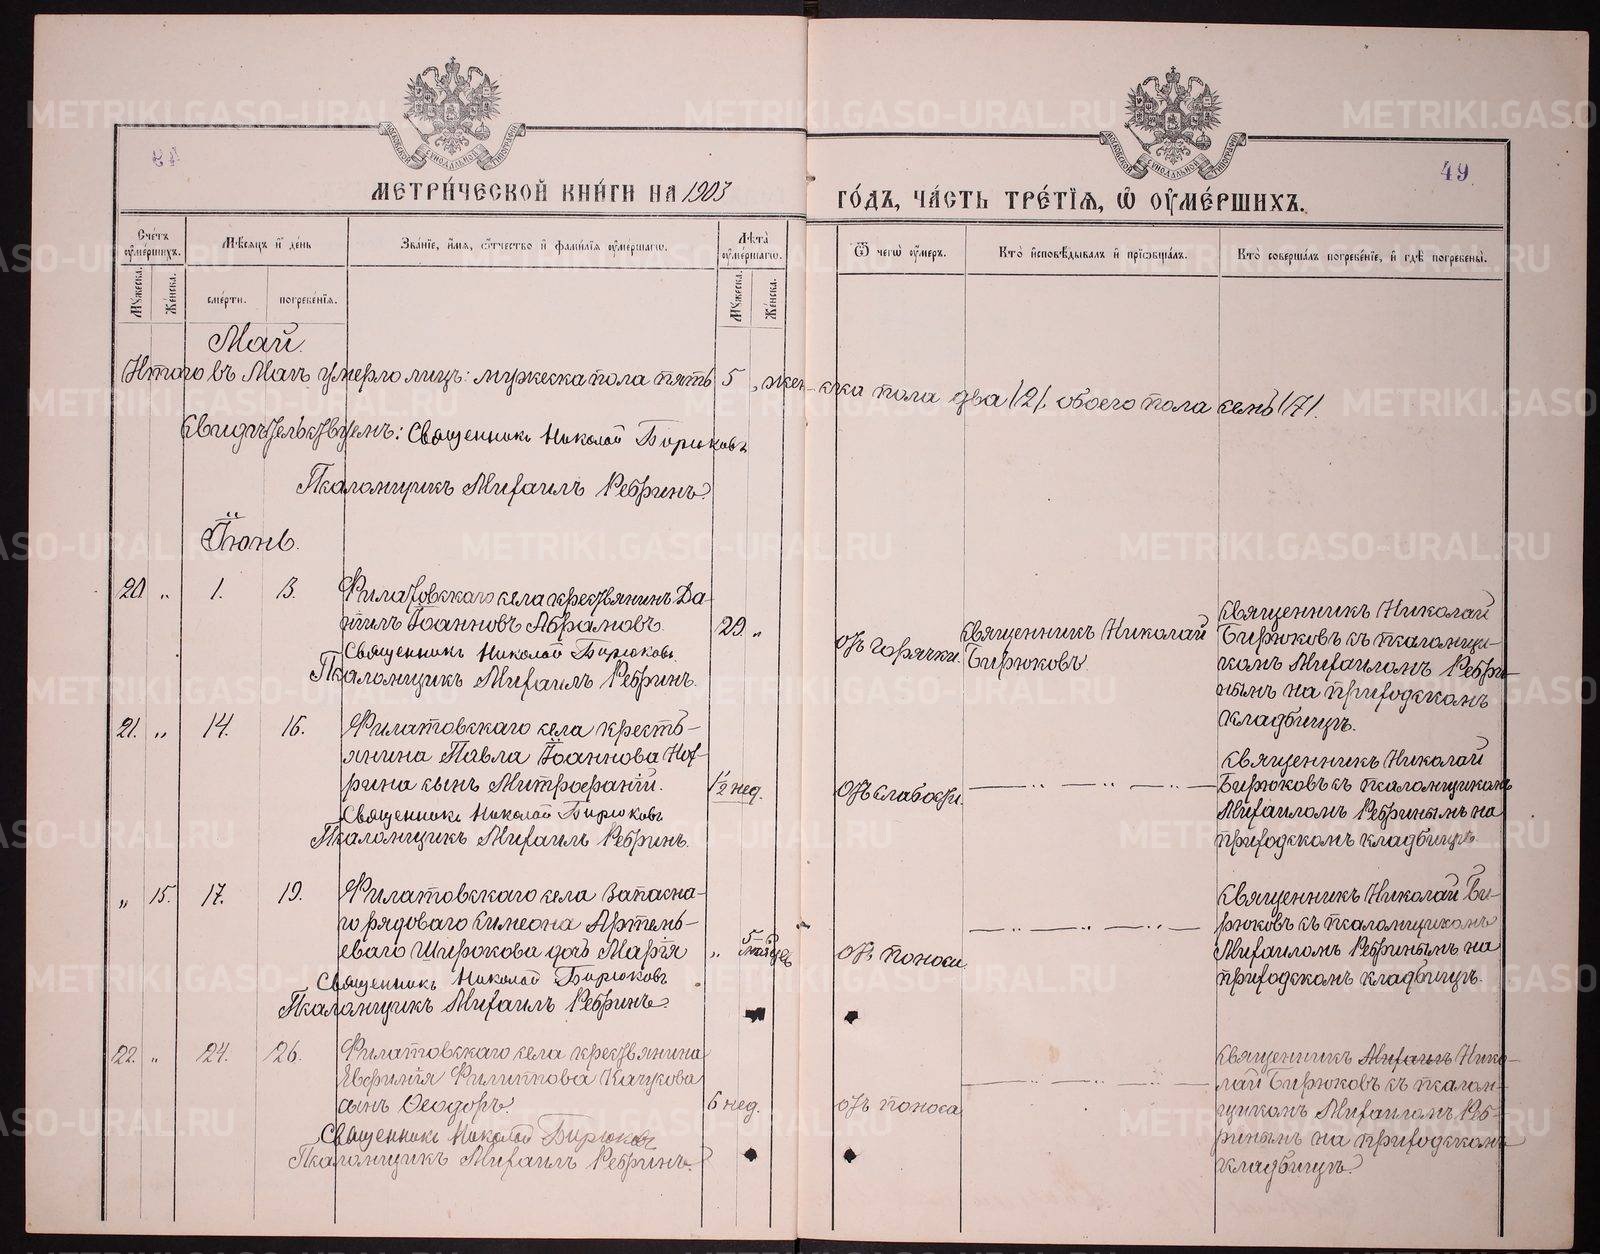 49
МЕТРИ́ЧЕСКОЙ КНИ́ГИ НА 1903 ГО́ДЪ, ЧА́СТЬ ТРЕ́ТІѦ, Ѿ ОУ҆МЕ́РШИХЪ.
Сче́тъ оу҆ме́ршихъ.
Мѣ́сѧцъ и҆ де́нь
Зва́нїе, и҆́мѧ, ѻ҆́тчество и҆ фами́лїѧ оу҆ме́ршагѡ.
Лѣ̑та оу҆ме́ршагѡ.
Ѿ чегѡ̀ оу҆́меръ.
Кто̀ и҆сповѣ́дывалъ и҆ прїѡбща́лъ.
Кто̀ соверша́лъ погребе́нїе, и҆ гдѣ̀ погребены̀.
Мꙋ́жеска.
Же́нска.
сме́рти.
погребе́нїѧ.
Мꙋ́жеска.
Же́нска.
Май.
Итого въ Маѣ умерло лицъ: мужеска пола пять 5, женска пола два /2/, обоего пола семь /7/.
Свидѣтельствуемъ: Священникъ Николай Бирюковъ
Псаломщикъ Михаилъ Ребринъ.
Іюнь.
20 „ 1. 3. Филатовскаго села крестьянинъ Да-
ніилъ Іоанновъ Абрамовъ.
29. „
Священникъ Николай Бирюковъ.
Псаломщикъ Михаилъ Ребринъ.
отъ горячки.
Священникъ Николай
Бирюковъ.
Священникъ Николай
Бирюковъ съ псаломщи-
комъ Михаиломъ Ребри-
нымъ на приходскомъ
кладбищѣ.
21. „ 14. 16. Филатовскаго села кресть-
янина Павла Іоаннова
сынъ Митрофаній.
1/2 нед.
Священникъ Николай Бирюковъ
Псаломщикъ Михаилъ Ребринъ.
отъ слабости.
— „ — „ —
Священникъ Николай
Бирюковъ съ псаломщикомъ
Михаиломъ Ребринымъ на
приходскомъ кладбищѣ
„ 15. 17. 19. Филатовскаго села запасна-
го рядоваго Симеона Артемь-
еваго Широкова дочь Марія
„ 5 мѣсяцевъ
Священникъ Николай Бирюковъ
Псаломщикъ Михаилъ Ребринъ.
отъ поноса
— „ — „ —
Священникъ Николай Би-
рюковъ съ псаломщикомъ
Михаиломъ Ребринымъ на
приходскомъ кладбищѣ.
22. „ 24. 26. Филатовскаго села крестьянина
Евфимія Филиппова Качукова
сынъ Ѳеодоръ.
6 нед.
Священникъ Николай Бирюковъ
Псаломщикъ Михаилъ Ребринъ.
отъ поноса
— „ — „ —
Священникъ Михаилъ Нико-
лай Бирюковъ съ псалом-
щикомъ Михаиломъ Реб-
ринымъ на приходскомъ
кладбищѣ.
METRIKI.GASO-URAL.RU